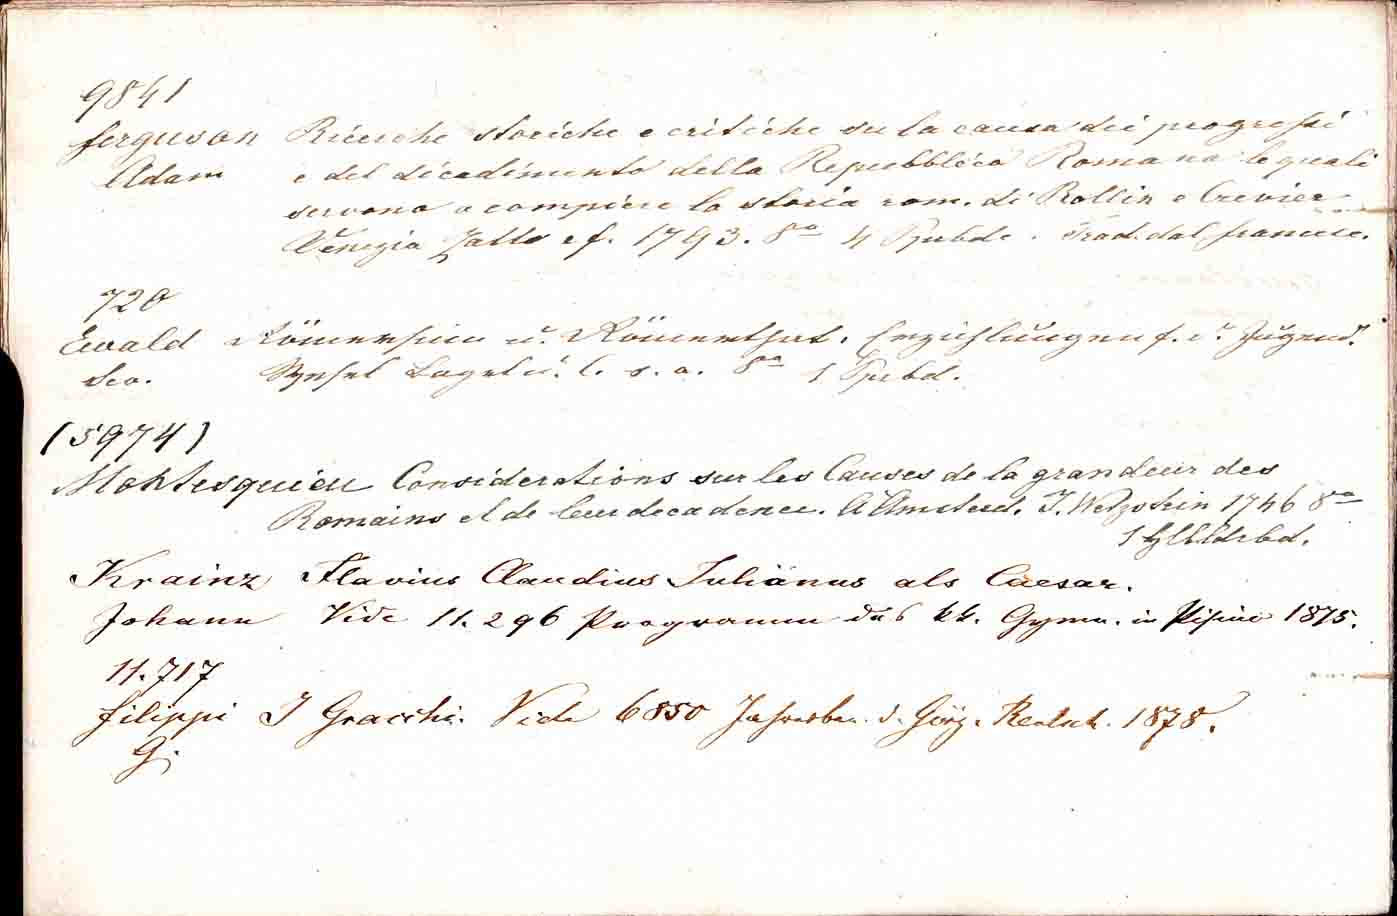 9841
Ferguson Ricerche storiche e critiche su la causa dei progressi
Adam e del decadimento della Repubblica Romana le quali
servono a compiere la storia rom. di Rollin e Crevier
Venezia Zatta e f. 1793. 8º 4 Ppbde. Trad. dal francese.
720
Ewald Römersinn u. Römerthat. Erzählungen f. d. Jugend.
Wesel l. s. a. 8º 1 Ppbd.
(5974)
Montesquieu Considerations sur les Causes de la grandeur des
Romains et de leur decadence. A Amsterd. J. Wetzstein 1746 8º
1 Hlbldrbd.
Krainz Flavius Claudius Julianus als Caesar.
Johann Vide 11.296 Programm des kk. Gymn. in Pisino 1875.
11.717
Filippi I Gracchi. Vide 6850 Jahresber. d. Görz. Realsch. 1878.
G.